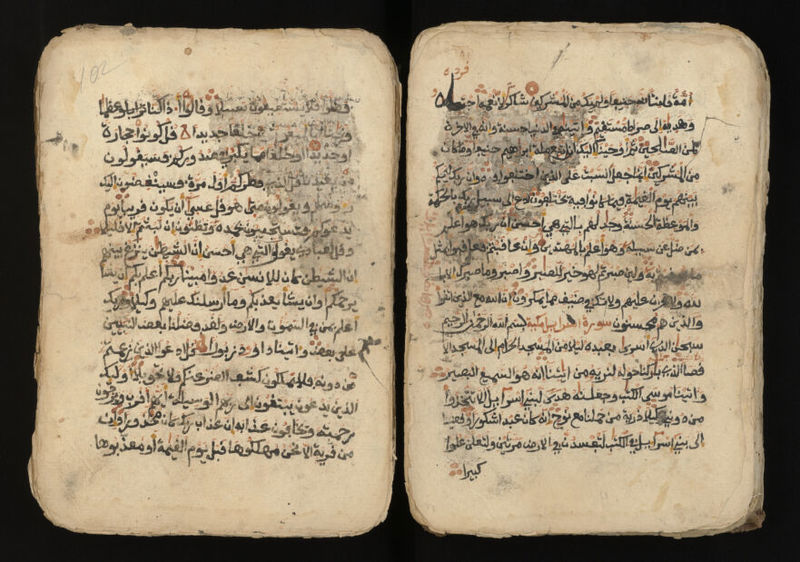 امة قانتا لله حنيفا ولم يك من المشركين شاكرا لانعمه اجتبيه
وهديه الى صراط مستقيم واتينه في الدنيا حسنة وانه في الاخرة
لمن الصلحين ثم اوحينا اليك ان اتبع ملة ابرهيم حنيفا وما كان
من المشركين انما جعل السبت على الذين اختلفوا فيه وان ربك ليحكم
بينهم يوم القيمة فيما كانوا فيه يختلفون ادع الى سبيل ربك بالحكمة
والموعظة الحسنة وجدلهم بالتي هي احسن ان ربك هو اعلم
بمن ضل عن سبيله وهو اعلم بالمهتدين وان عاقبتم فعاقبوا بمثل
ما عوقبتم به ولين صبرتم لهو خير للصبرين واصبر وما صبرك الا با
لله ولا تحزن عليهم ولا تك في ضيق مما يمكرون ان الله مع الذين اتقوا
والذين هم محسنون سورة اسرايل مكية بسم الله الرحمن الرحيم
سبحن الذي اسرى بعبده ليلا من المسجد الحرام الى المسجد الا
قصا الذي بركنا حوله لنريه من ايتنا انه هو السميع البصير
واتينا موسى الكتب وجعلنه هدى لبني اسرايل الا تتخذوا
من دوني وكيلا ذرية من حملنا مع نوح انه كان عبدا شكورا وقضينا
الى بني اسرايل في الكتب لتفسدن في الارض مرتين ولتعلن علوا
كبيرا
102
فضلوا فلا يستطيعون سبيلا وقالوا اذا كنا عظما
ورفتا انا لمبعوثون خلقا جديدا قل كونوا حجارة
او حديدا او خلقا مما يكبر في صدوركم فسيقولون
من يعيدنا قل الذي فطركم اول مرة فسينغضون اليك
روسهم ويقولون متى هو قل عسى ان يكون قريبا يوم
يدعوكم فتستجيبون بحمده وتظنون ان لبثتم الا قليلا
وقل لعبادي يقولوا التي هي احسن ان الشيطن ينزغ بينهم
ان الشيطن كان للانسن عدوا مبينا ربكم اعلم بكم ان يشا
يرحمكم او ان يشا يعذبكم وما ارسلنك عليهم وكيلا وربك
اعلم بمن في السموت والارض ولقد فضلنا بعض النبيين
على بعض واتينا داود زبورا قل ادعوا الذين زعمتم
من دونه فلا يملكون كشف الضر عنكم ولا تحويلا اوليك
الذين يدعون يبتغون الى ربهم الوسيلة ايهم اقرب ويرجون
رحمته ويخافون عذابه ان عذاب ربك كان محذورا وان
من قرية الا نحن مهلكوها قبل يوم القيمة او معذبوها